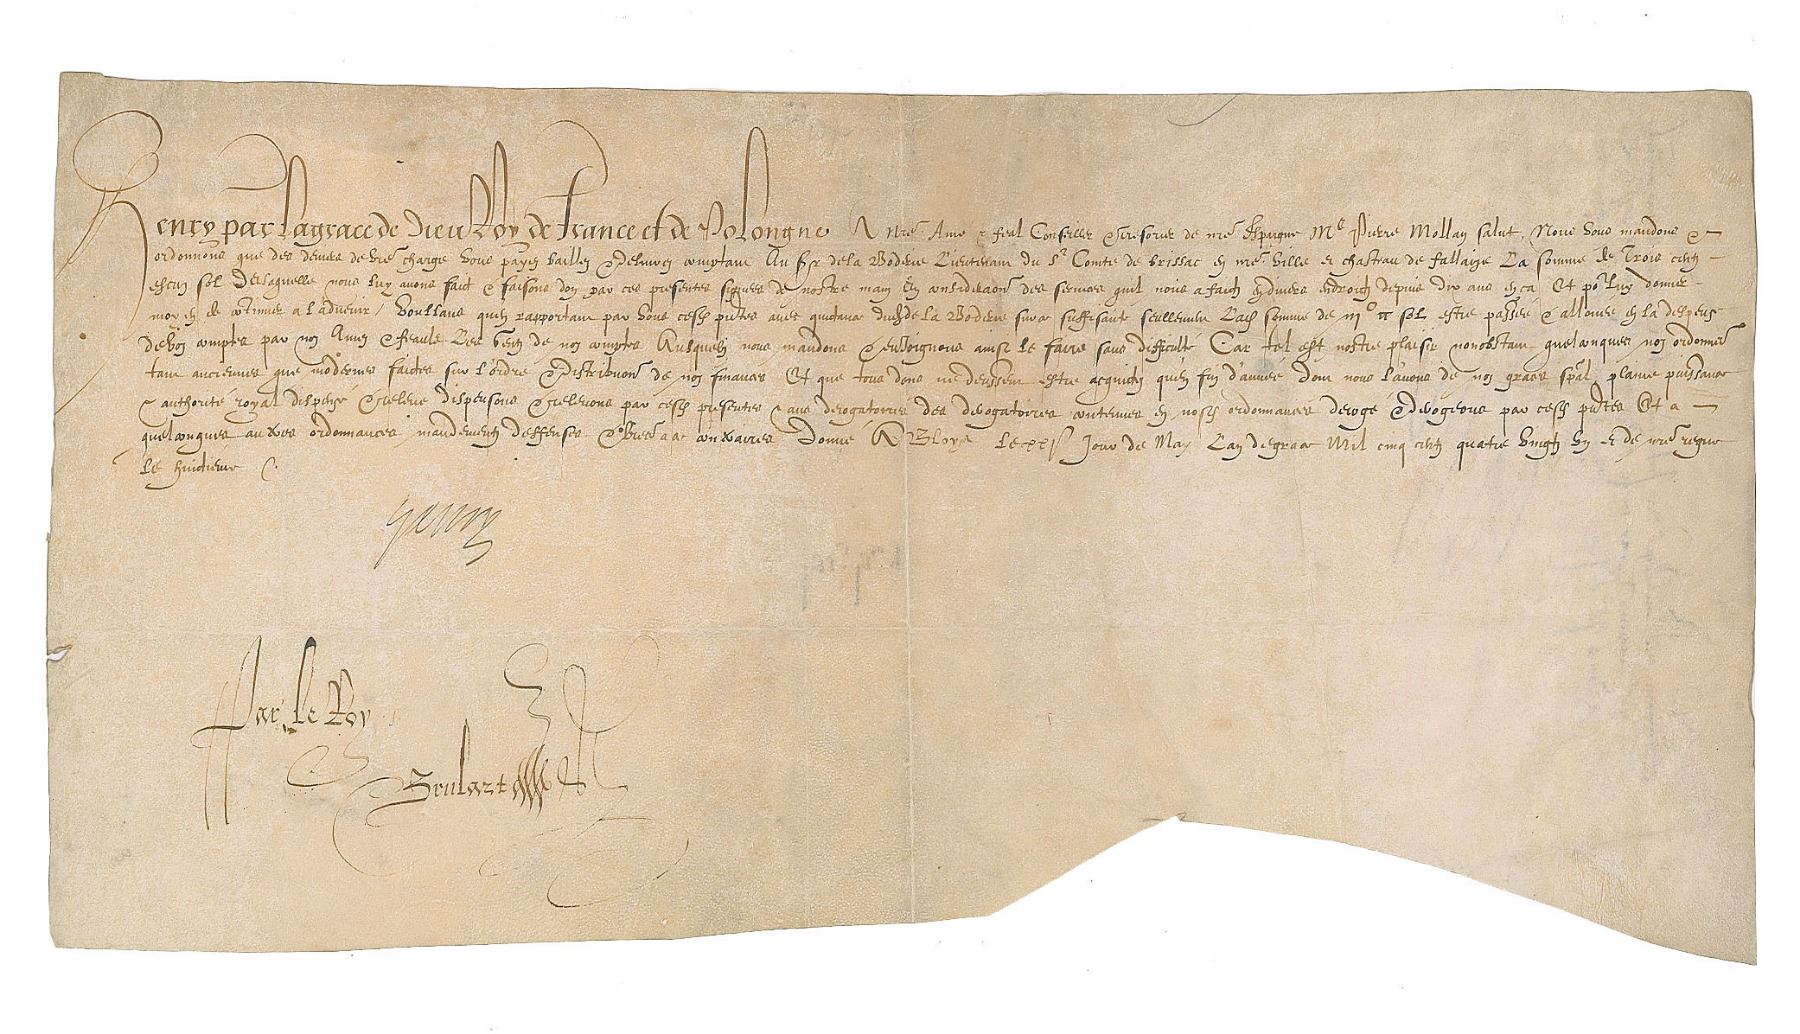 Henry par la grace de Dieu Roy de france et de Pologne A nre Ame & feal Conseiller & tresorier de nre espargne Me Pierre Mollan salut, Nous vous mandons &
ordonnons que des deniers de vre charge vous payez baillez & delivrez comptant Au Sr de la Boderie Lieutenant du Sr Comte de Brissac en nre ville et chasteau de fallaize La somme de Trois cens
escuz sol De laquelle nous luy avons faict & faisons don par ces presentes signees de nostre main En consideration des services quil nous a faictz en divers endroictz depuis dix ans en ca Et po luy donner
moyen de continuer a l'advenir / Voullans quen rapportant par vous cesd pntes avec quictance dud de la Boderie sur ce suffisante seullement Lad somme de iijc sol estre passee & allouee en la despense
de voz comptes par noz Amez & feaulx Les Gens de noz comptes Ausquelz nous mandons & enjoignons ainsi le faire sans difficulté Car tel est nostre plaisir nonobstant quelconques noz ordonnances
tant anciennes que modernes faictes sur l'ordre & distribution de noz finances Et que telz dons ne deussent estre acquictez quen fin d'annee dont nous l'avons de noz grace spal plaine puissance
& authorité royal dispensé & relevé dispensons & relevons par cesd presentes & aux derogatoires des derogatoires contenues en nosd ordonnances derogé & derogeons par cesd pntes Et a
quelconques autres ordonnances mandemens deffenses & lres a ce contraires Donné A Bloys Le jour de May L'an de grace Mil cinq cens quatre vingtz un et de nre regne
le huictieme
Henry
Par le Roy
Brulart